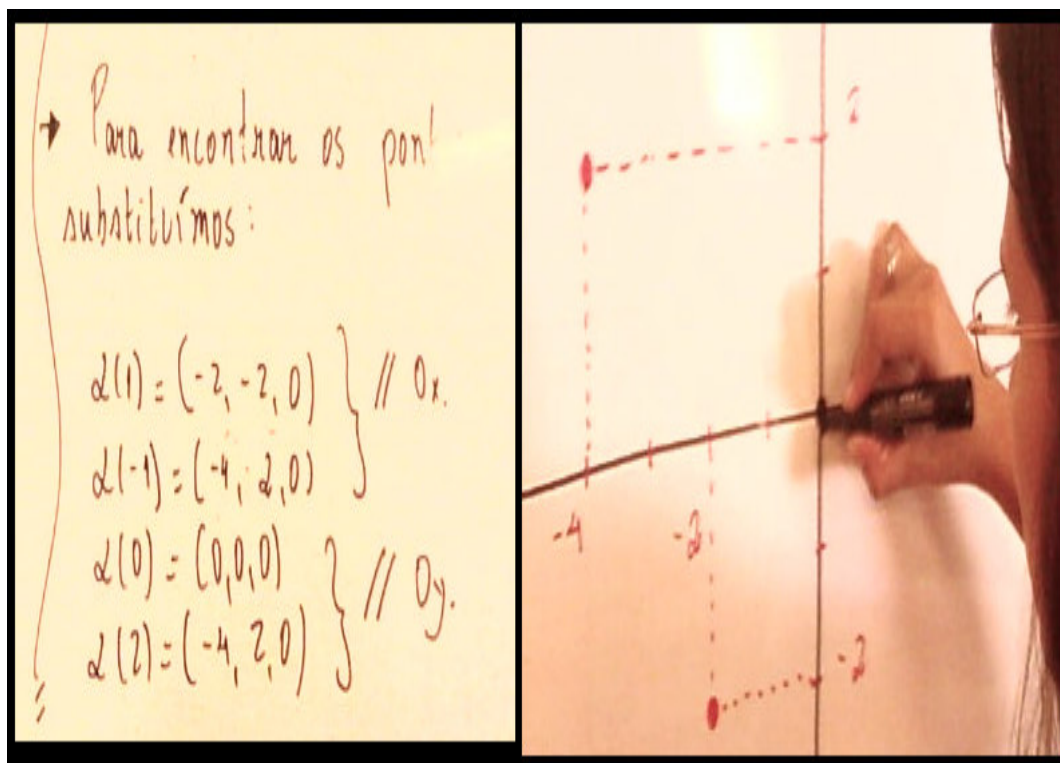 → Para encontrar os pon
substituímos:
α(1) = (-2, -2, 0)
α(-1) = (-4, 2, 0)
// Ox.
α(0) = (0,0,0)
α(2) = (-4, 2, 0)
// Oy.
2
-4
-2
-2